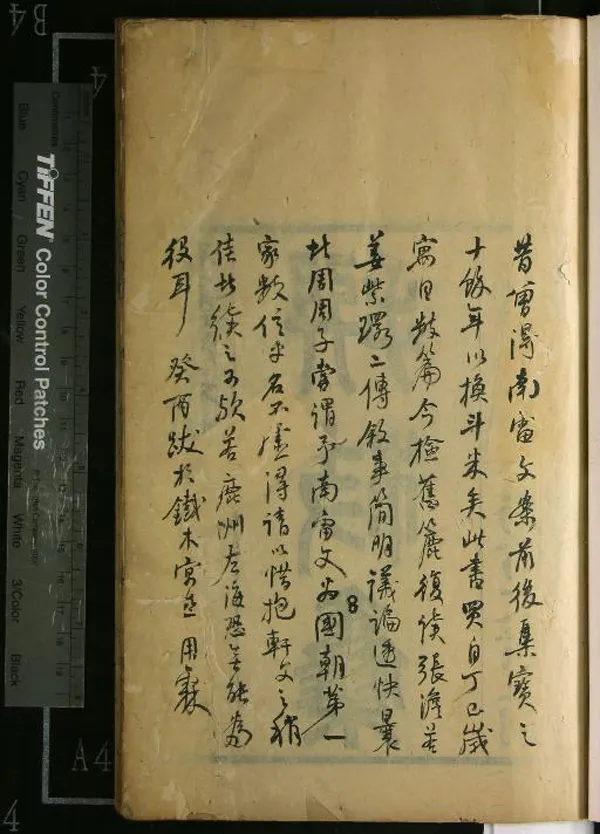 昔曾得南雷文案前後集寶之
十餘年以換斗米矣此書買自丁巳歲
寓目數篇今檢舊簏復讀張滄若
姜紫環二傳敘事簡明議論透快曩
北周周子嘗謂予南雷文為國朝第一
家數信乎名不虛得諸以惜抱軒文之稍
佳者繼之可欤若鹿洲左海恐無能為
役耳 癸酉跋於鐵木寄廬 用霖
8
TIFFEN Color Control Patches
Blue
Cyan
Green
Yellow
Red
Magenta
White
3/Color
Black
B4
4
A4
4